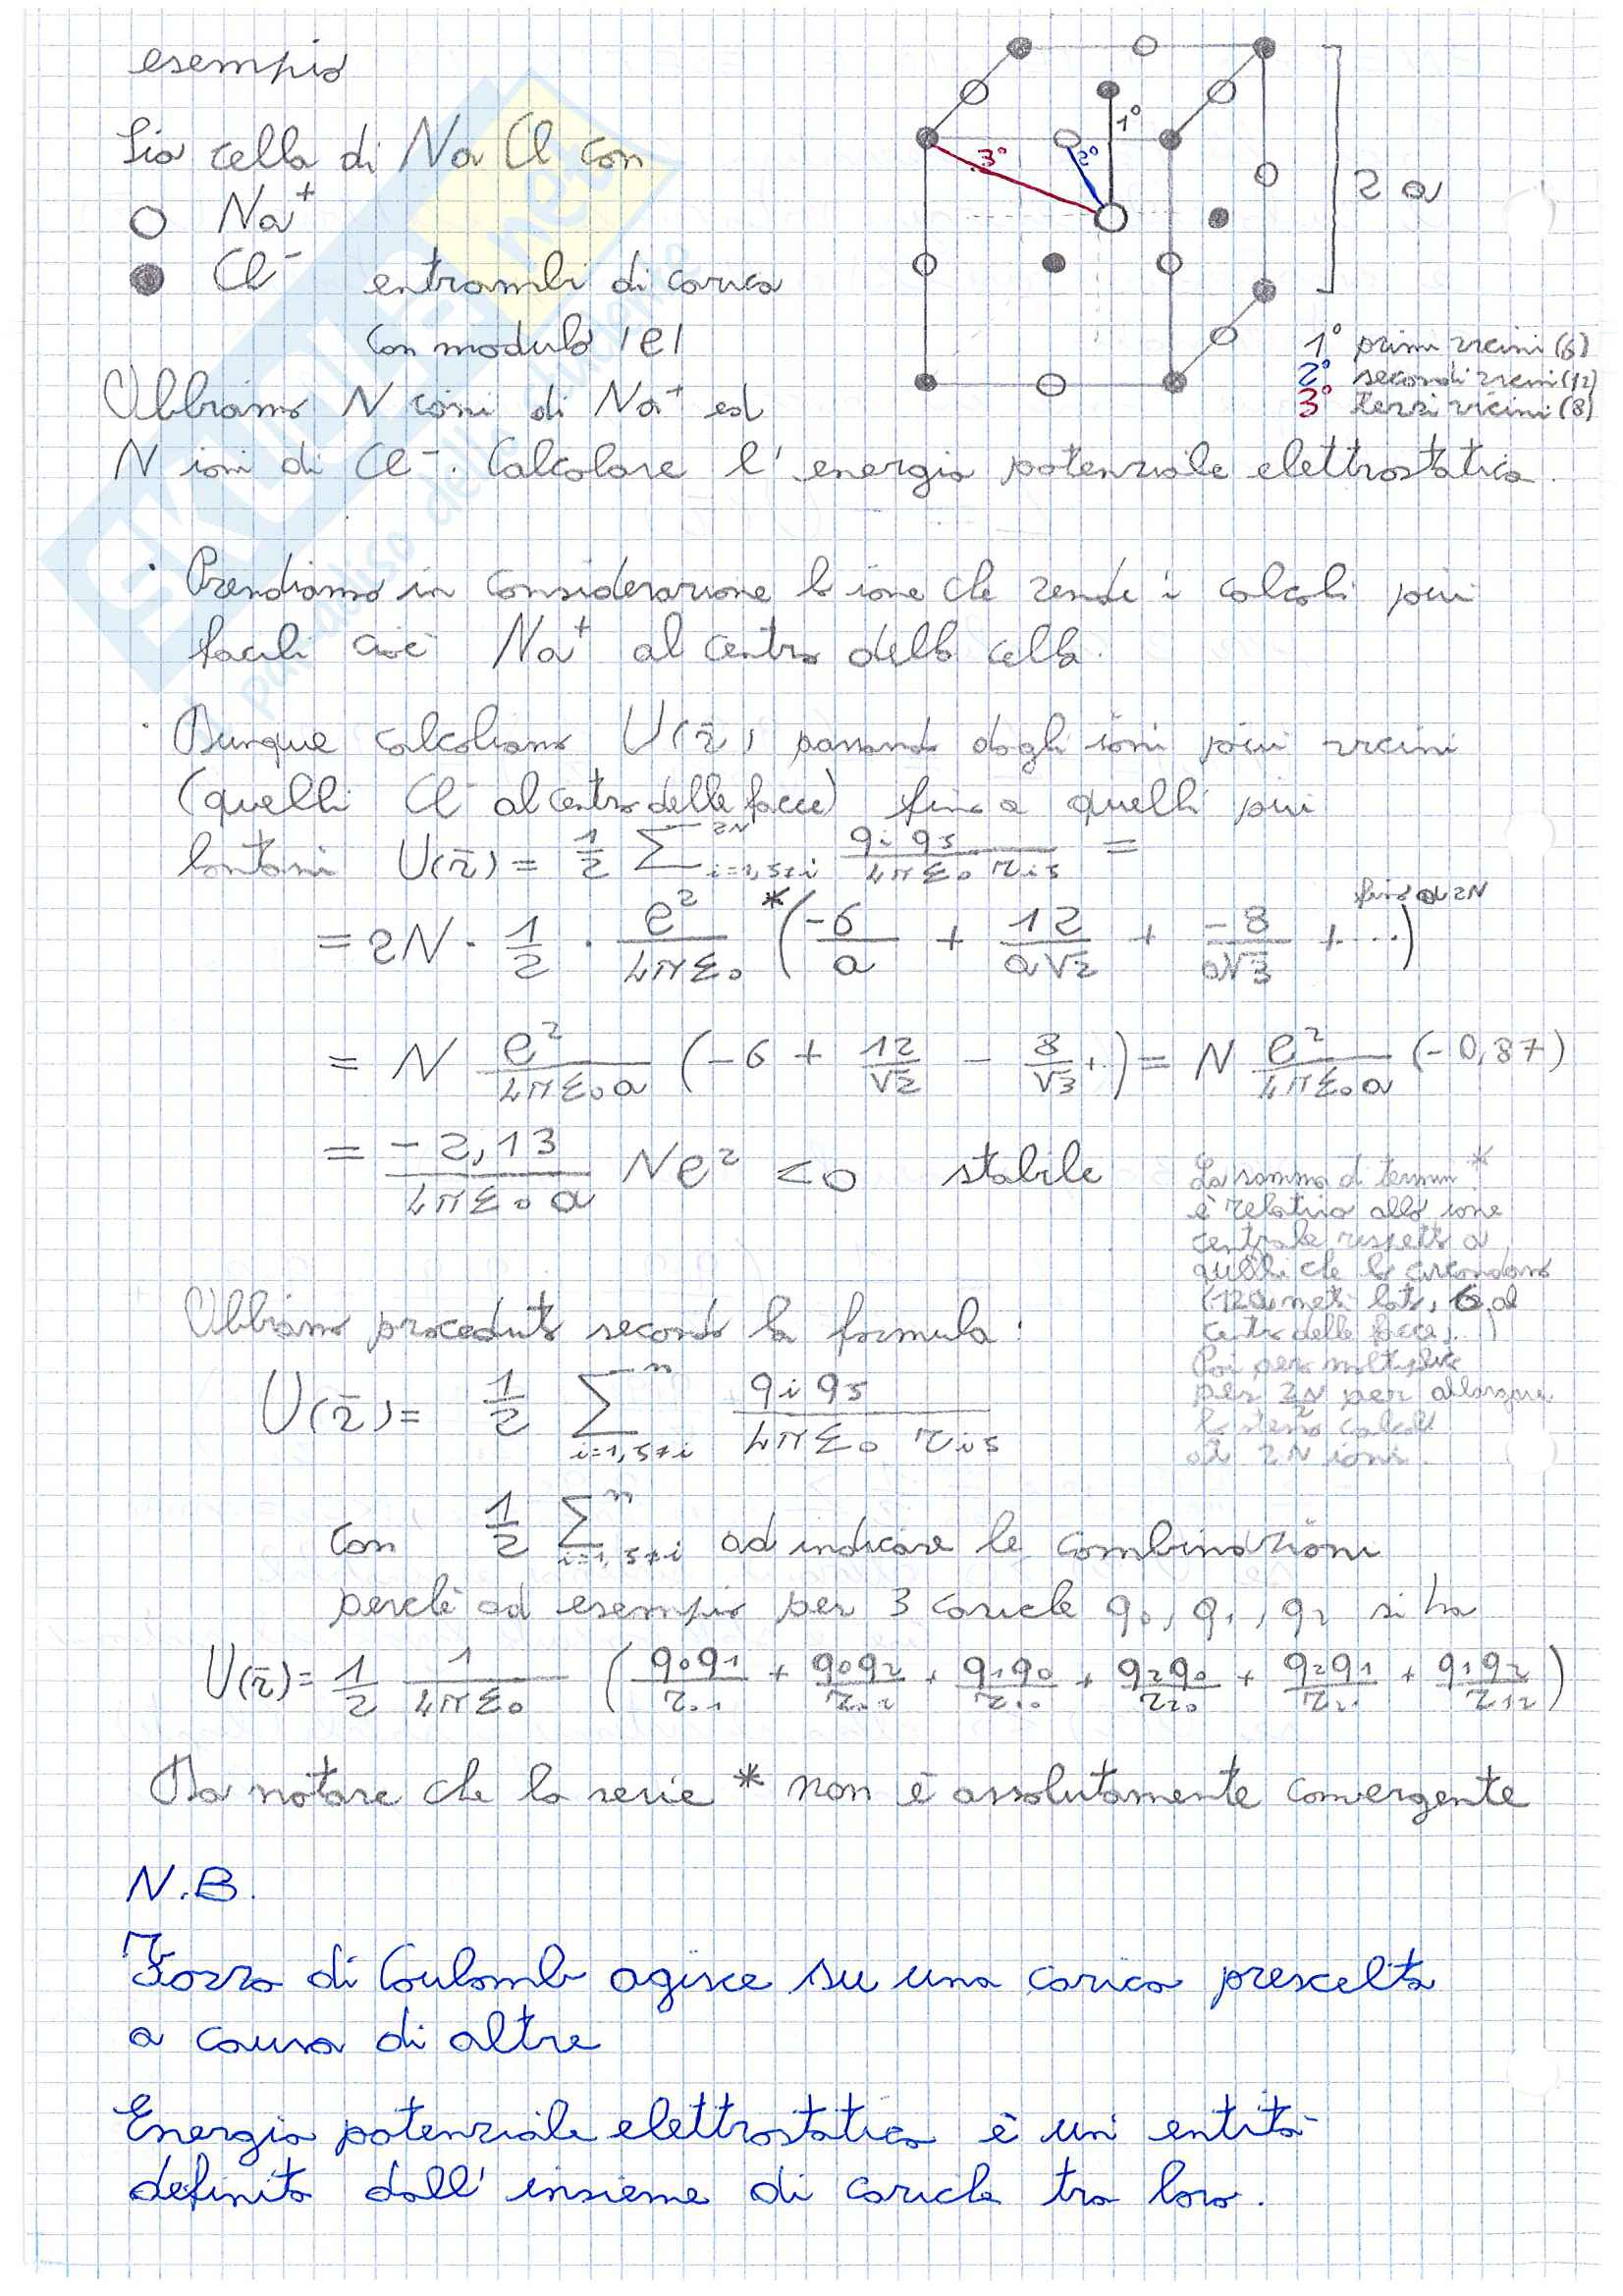 esempio
Sia cella di NaCl con
○ Na⁺
● Cl⁻ entrambi di carica
con modulo |e|
1°
2°
3°
2a
1° primi vicini (6)
2° secondi vicini (12)
3° terzi vicini (8)
Abbiamo N ioni di Na⁺ ed
N ioni di Cl⁻. Calcolare l'energia potenziale elettrostatica.
· Prendiamo in considerazione lo ione che rende i calcoli più
facili cioè Na⁺ al centro della cella.
· Dunque calcoliamo U(r̄) passando dagli ioni più vicini
(quelli Cl⁻ al centro delle facce) fino a quelli più
lontani U(r̄) = 1/2 Σ^2N_i=1,j≠i qi qj / 4πε₀ rij =
= 2N · 1/2 · e²/4πε₀ *(-6/a + 12/a√2 + -8/a√3 + ...) fino a 2N
= N e²/4πε₀a (-6 + 12/√2 - 8/√3 + ..) = N e²/4πε₀a (-0,87)
= -2,13/4πε₀a Ne² <0 stabile
La somma di termini *
è relativa allo ione
centrale rispetto a
quelli che lo circondano
(12 a metà lato, 6 al
centro delle facce,..)
Poi però moltiplico
per 2N/2 per allargare
lo stesso calcolo
ai 2N ioni.
Abbiamo proceduto secondo la formula:
U(r̄) = 1/2 Σ^n_i=1,j≠i qi qj / 4πε₀ rij
con 1/2 Σ^n_i=1,j≠i ad indicare le combinazioni
perchè ad esempio per 3 cariche q₀, q₁, q₂ si ha
U(r̄) = 1/2 1/4πε₀ (q₀q₁/r₀₁ + q₀q₂/r₀₂ + q₁q₀/r₁₀ + q₂q₀/r₂₀ + q₂q₁/r₂₁ + q₁q₂/r₁₂)
Da notare che la serie * non è assolutamente convergente
N.B.
Forza di Coulomb agisce su una carica prescelta
a causa di altre
Energia potenziale elettrostatica è un'entità
definita dall'insieme di cariche tra loro.